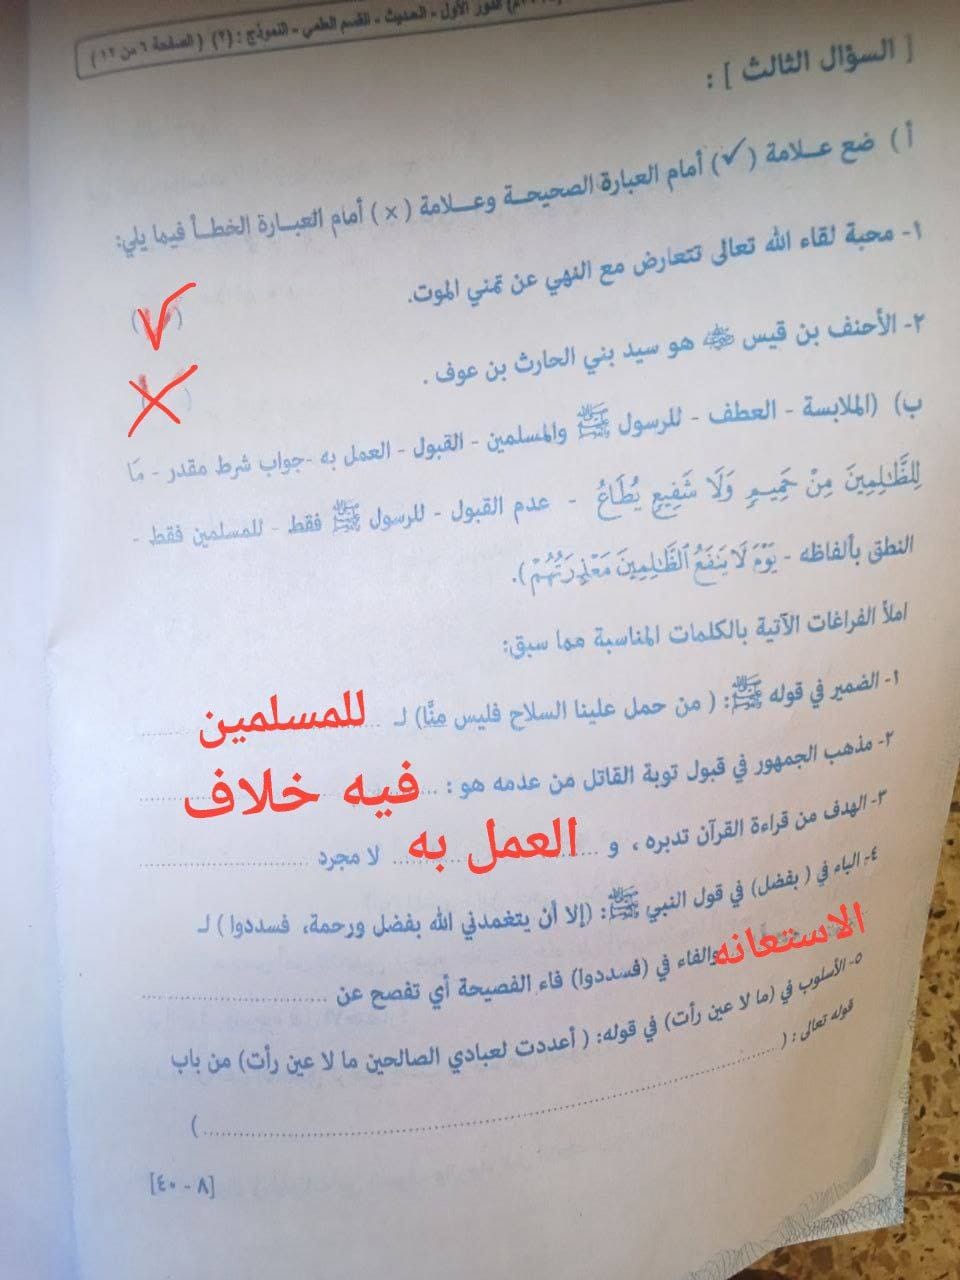 الدور الأول - الحديث - القسم العلمي - النموذج : (٣) ( الصفحة ٦ من ١٢ )
[ السؤال الثالث ] :
أ ) ضع عـلامة (✓) أمام العبارة الصحيحـة وعـلامة (×) أمام العبـارة الخطـأ فيما يلي:
١- محبة لقاء الله تعالى تتعارض مع النهي عن تمني الموت. (✓)
٢- الأحنف بن قيس ﵁ هو سيد بني الحارث بن عوف . (×)
ب) (الملابسة - العطف - للرسول ﷺ والمسلمين - القبول - العمل به -جواب شرط مقدر - مَا
لِلظَّـٰلِمِينَ مِنْ حَمِيمٍ وَلَا شَفِيعٍ يُطَاعُ - عدم القبول - للرسول ﷺ فقط - للمسلمين فقط -
النطق بألفاظه - يَوْمَ لَا يَنفَعُ ٱلظَّـٰلِمِينَ مَعْذِرَتُهُمْ).
املأ الفراغات الآتية بالكلمات المناسبة مما سبق:
١- الضمير في قوله ﷺ: ( من حمل علينا السلاح فليس مِنَّا) لـ للمسلمين
٢- مذهب الجمهور في قبول توبة القاتل من عدمه هو : فيه خلاف
٣- الهدف من قراءة القرآن تدبره ، و العمل به لا مجرد
٤- الباء في ( بفضل) في قول النبي ﷺ: (إلا أن يتغمدني الله بفضل ورحمة، فسددوا ) لـ
الاستعانه والفاء في (فسددوا) فاء الفصيحة أي تفصح عن
٥- الأسلوب في (ما لا عين رأت) في قوله: ( أعددت لعبادي الصالحين ما لا عين رأت) من باب
قوله تعالى : (
)
[٨ - ٤٠]